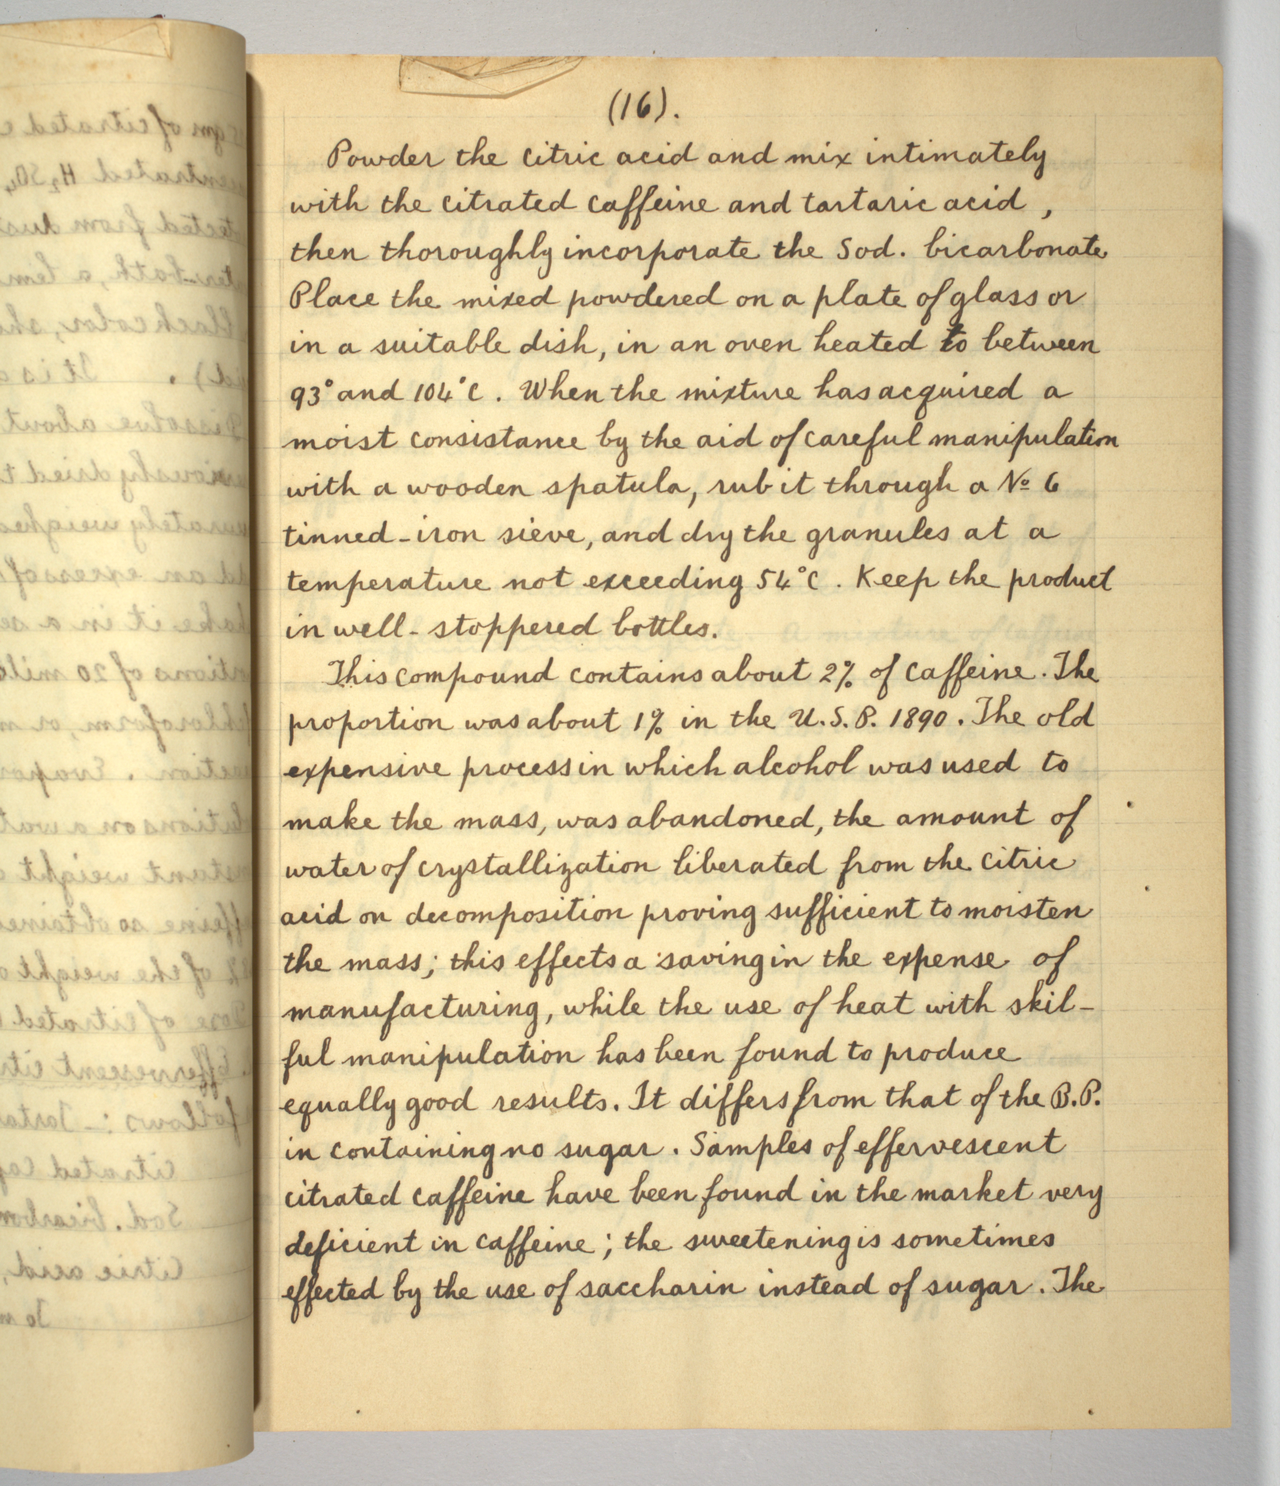 (16).
Powder the citric acid and mix intimately
with the citrated caffeine and tartaric acid,
then thoroughly incorporate the Sod. bicarbonate
Place the mixed powdered on a plate of glass or
in a suitable dish, in an oven heated to between
93° and 104°C. When the mixture has acquired a
moist consistance by the aid of careful manipulation
with a wooden spatula, rub it through a № 6
tinned-iron sieve, and dry the granules at a
temperature not exceeding 54°C. Keep the product
in well-stoppered bottles.
This compound contains about 2% of caffeine. The
proportion was about 1% in the U.S.P. 1890. The old
expensive process in which alcohol was used to
make the mass, was abandoned, the amount of
water of crystallization liberated from the citric
acid on decomposition proving sufficient to moisten
the mass; this effects a saving in the expense of
manufacturing, while the use of heat with skil-
ful manipulation has been found to produce
equally good results. It differs from that of the B.P.
in containing no sugar. Samples of effervescent
citrated caffeine have been found in the market very
deficient in caffeine; the sweetening is sometimes
effected by the use of saccharin instead of sugar. The